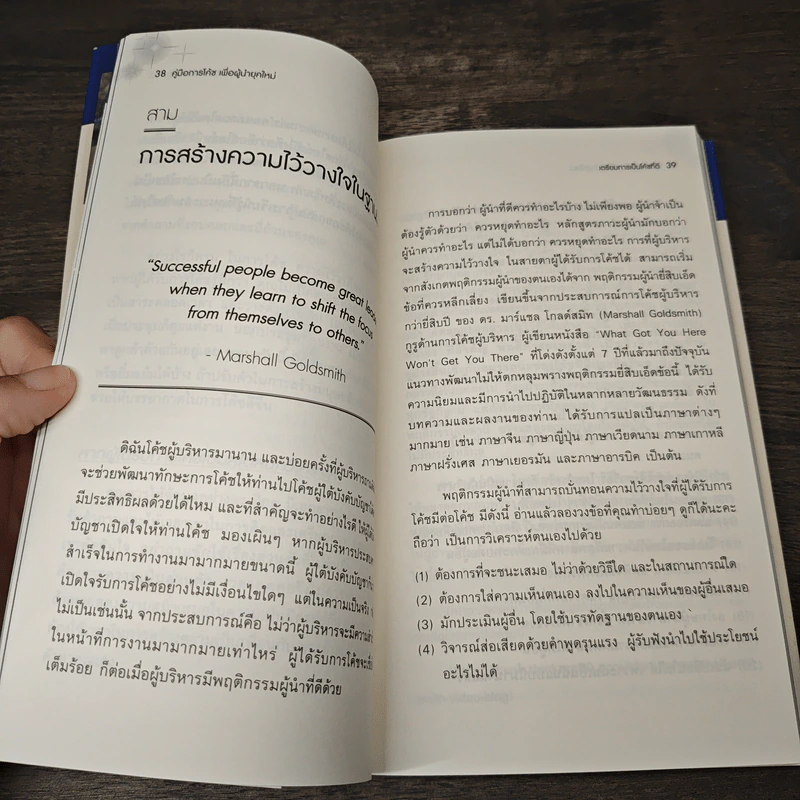 38 คู่มือการโค้ช เพื่อผู้นำยุคใหม่
สาม
การสร้างความไว้วางใจในฐาน
“Successful people become great lead
when they learn to shift the focus
from themselves to others.”
- Marshall Goldsmith
ดิฉันโค้ชผู้บริหารมานาน และบ่อยครั้งที่ผู้บริหารถาม
จะช่วยพัฒนาทักษะการโค้ชให้ท่านไปโค้ชผู้ใต้บังคับบัญชา
มีประสิทธิผลด้วยได้ไหม และที่สำคัญจะทำอย่างไรดี ให้ผู้ใต้
บัญชาเปิดใจให้ท่านโค้ช มองเผินๆ หากผู้บริหารประสบ
สำเร็จในการทำงานมามากมายขนาดนี้ ผู้ใต้บังคับบัญชา
เปิดใจรับการโค้ชอย่างไม่มีเงื่อนไขใดๆ แต่ในความเป็นจริง
ไม่เป็นเช่นนั้น จากประสบการณ์คือ ไม่ว่าผู้บริหารจะมีความ
ในหน้าที่การงานมามากมายเท่าไหร่ ผู้ได้รับการโค้ชจะ
เต็มร้อย ก็ต่อเมื่อผู้บริหารมีพฤติกรรมผู้นำที่ดีด้วย
เตรียมการเป็นโค้ชที่ดี 39
การบอกว่า ผู้นำที่ดีควรทำอะไรบ้าง ไม่เพียงพอ ผู้นำจำเป็น
ต้องรู้ตัวด้วยว่า ควรหยุดทำอะไร หลักสูตรภาวะผู้นำมักบอกว่า
ผู้นำควรทำอะไร แต่ไม่ได้บอกว่า ควรหยุดทำอะไร การที่ผู้บริหาร
จะสร้างความไว้วางใจ ในสายตาผู้ได้รับการโค้ชได้ สามารถเริ่ม
จากสังเกตพฤติกรรมผู้นำของตนเองได้จาก พฤติกรรมผู้นำยี่สิบเอ็ด
ข้อที่ควรหลีกเลี่ยง เขียนขึ้นจากประสบการณ์การโค้ชผู้บริหาร
กว่ายี่สิบปี ของ ดร. มาร์แชล โกลด์สมิท (Marshall Goldsmith)
กูรูด้านการโค้ชผู้บริหาร ผู้เขียนหนังสือ “What Got You Here
Won't Get You There” ที่โด่งดังตั้งแต่ 7 ปีที่แล้วมาถึงปัจจุบัน
แนวทางพัฒนาไม่ให้ตกหลุมพรางพฤติกรรมยี่สิบเอ็ดข้อนี้ ได้รับ
ความนิยมและมีการนำไปปฏิบัติในหลากหลายวัฒนธรรม ดังที่
บทความและผลงานของท่าน ได้รับการแปลเป็นภาษาต่างๆ
มากมาย เช่น ภาษาจีน ภาษาญี่ปุ่น ภาษาเวียดนาม ภาษาเกาหลี
ภาษาฝรั่งเศส ภาษาเยอรมัน และภาษาอารบิค เป็นต้น
พฤติกรรมผู้นำที่สามารถบั่นทอนความไว้วางใจที่ผู้ได้รับการ
โค้ชมีต่อโค้ช มีดังนี้ อ่านแล้วลองวงข้อที่คุณทำบ่อยๆ ดูก็ได้นะคะ
ถือว่า เป็นการวิเคราะห์ตนเองไปด้วย
(1) ต้องการที่จะชนะเสมอ ไม่ว่าด้วยวิธีใด และในสถานการณ์ใด
(2) ต้องการใส่ความเห็นตนเอง ลงไปในความเห็นของผู้อื่นเสมอ
(3) มักประเมินผู้อื่น โดยใช้บรรทัดฐานของตนเอง
(4) วิจารณ์ส่อเสียดด้วยคำพูดรุนแรง ผู้รับฟังนำไปใช้ประโยชน์
อะไรไม่ได้